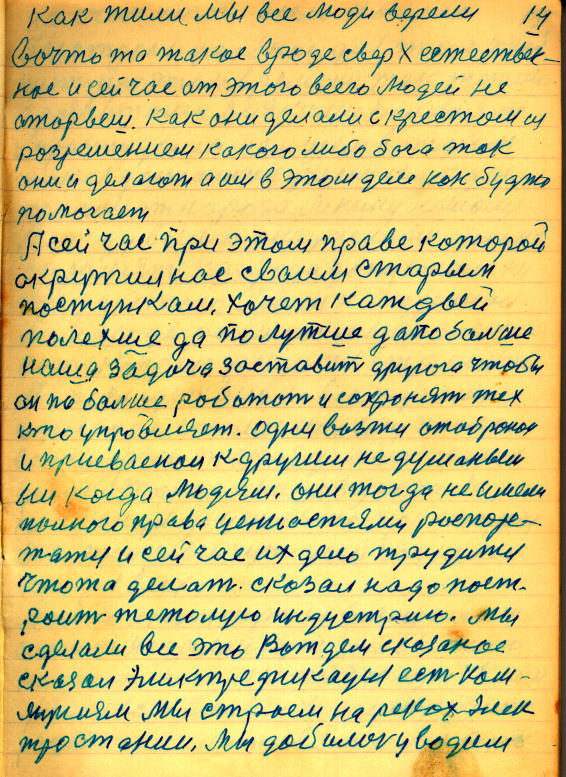 как жили мы все люди верели 14
вочто та такое вроде сверхестествен-
ное и сейчас от этого всего людей не
оторвеш. как они делали с крестом и
розрешением какого либо бога так
они и делают а им в этом деле как будто
помогает
А сейчас при этом праве которой
окружил нас своим старым
поступкам. хочет каждый
полехше да получше да по больше
наша задача заставит друга чтобы
он по больше работат и сохронят тех
кто упровляет. одни вожжи отобронои
и приевоенои к другим недушаным
они когда людям. они тогда не имели
полного права ценностями роспоре-
жати и сейчас их дело трудити
чтота делат. сказал надо пост-
роит тежолую индустрию. мы
сделали все это Вождем сказаное
сказал Электрефикацыя ест ком-
мунизм мы строем на реках элек
тростанции. мы добилису водим